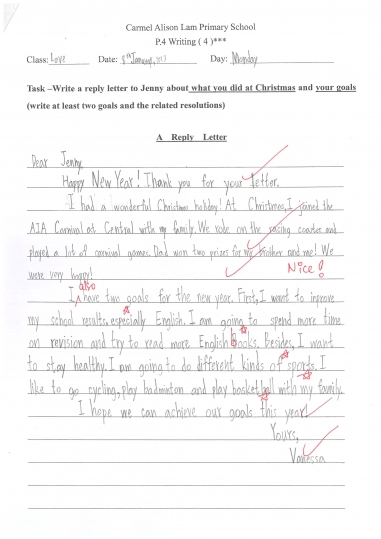 Carmel Alison Lam Primary School
P.4 Writing ( 4 )***
Class: Love Date: 8th January, Day: Monday
Task –Write a reply letter to Jenny about what you did at Christmas and your goals
(write at least two goals and the related resolutions)
A Reply Letter
Dear Jenny,
Happy New Year! Thank you for your letter.
I had a wonderful Christmas holiday! At Christmas, I joined the
AIA Carnival at Central with my family. We rode on the racing coaster and
played a lot of carnival games. Dad won two prizes for my brother and me! We
were very happy! Nice!
I also have two goals for the new year. First, I want to improve
my school results, especially English. I am going to spend more time
on revision and try to read more English books. Besides, I want
to stay healthy. I am going to do different kinds of sports. I
like to go cycling, play badminton and play basketball with my family.
I hope we can achieve our goals this year!
Yours,
Vanessa